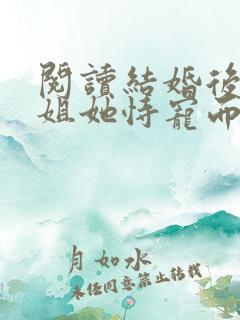 閱讀結婚後
姐她恃寵而
月如水
未經同意禁止轉載